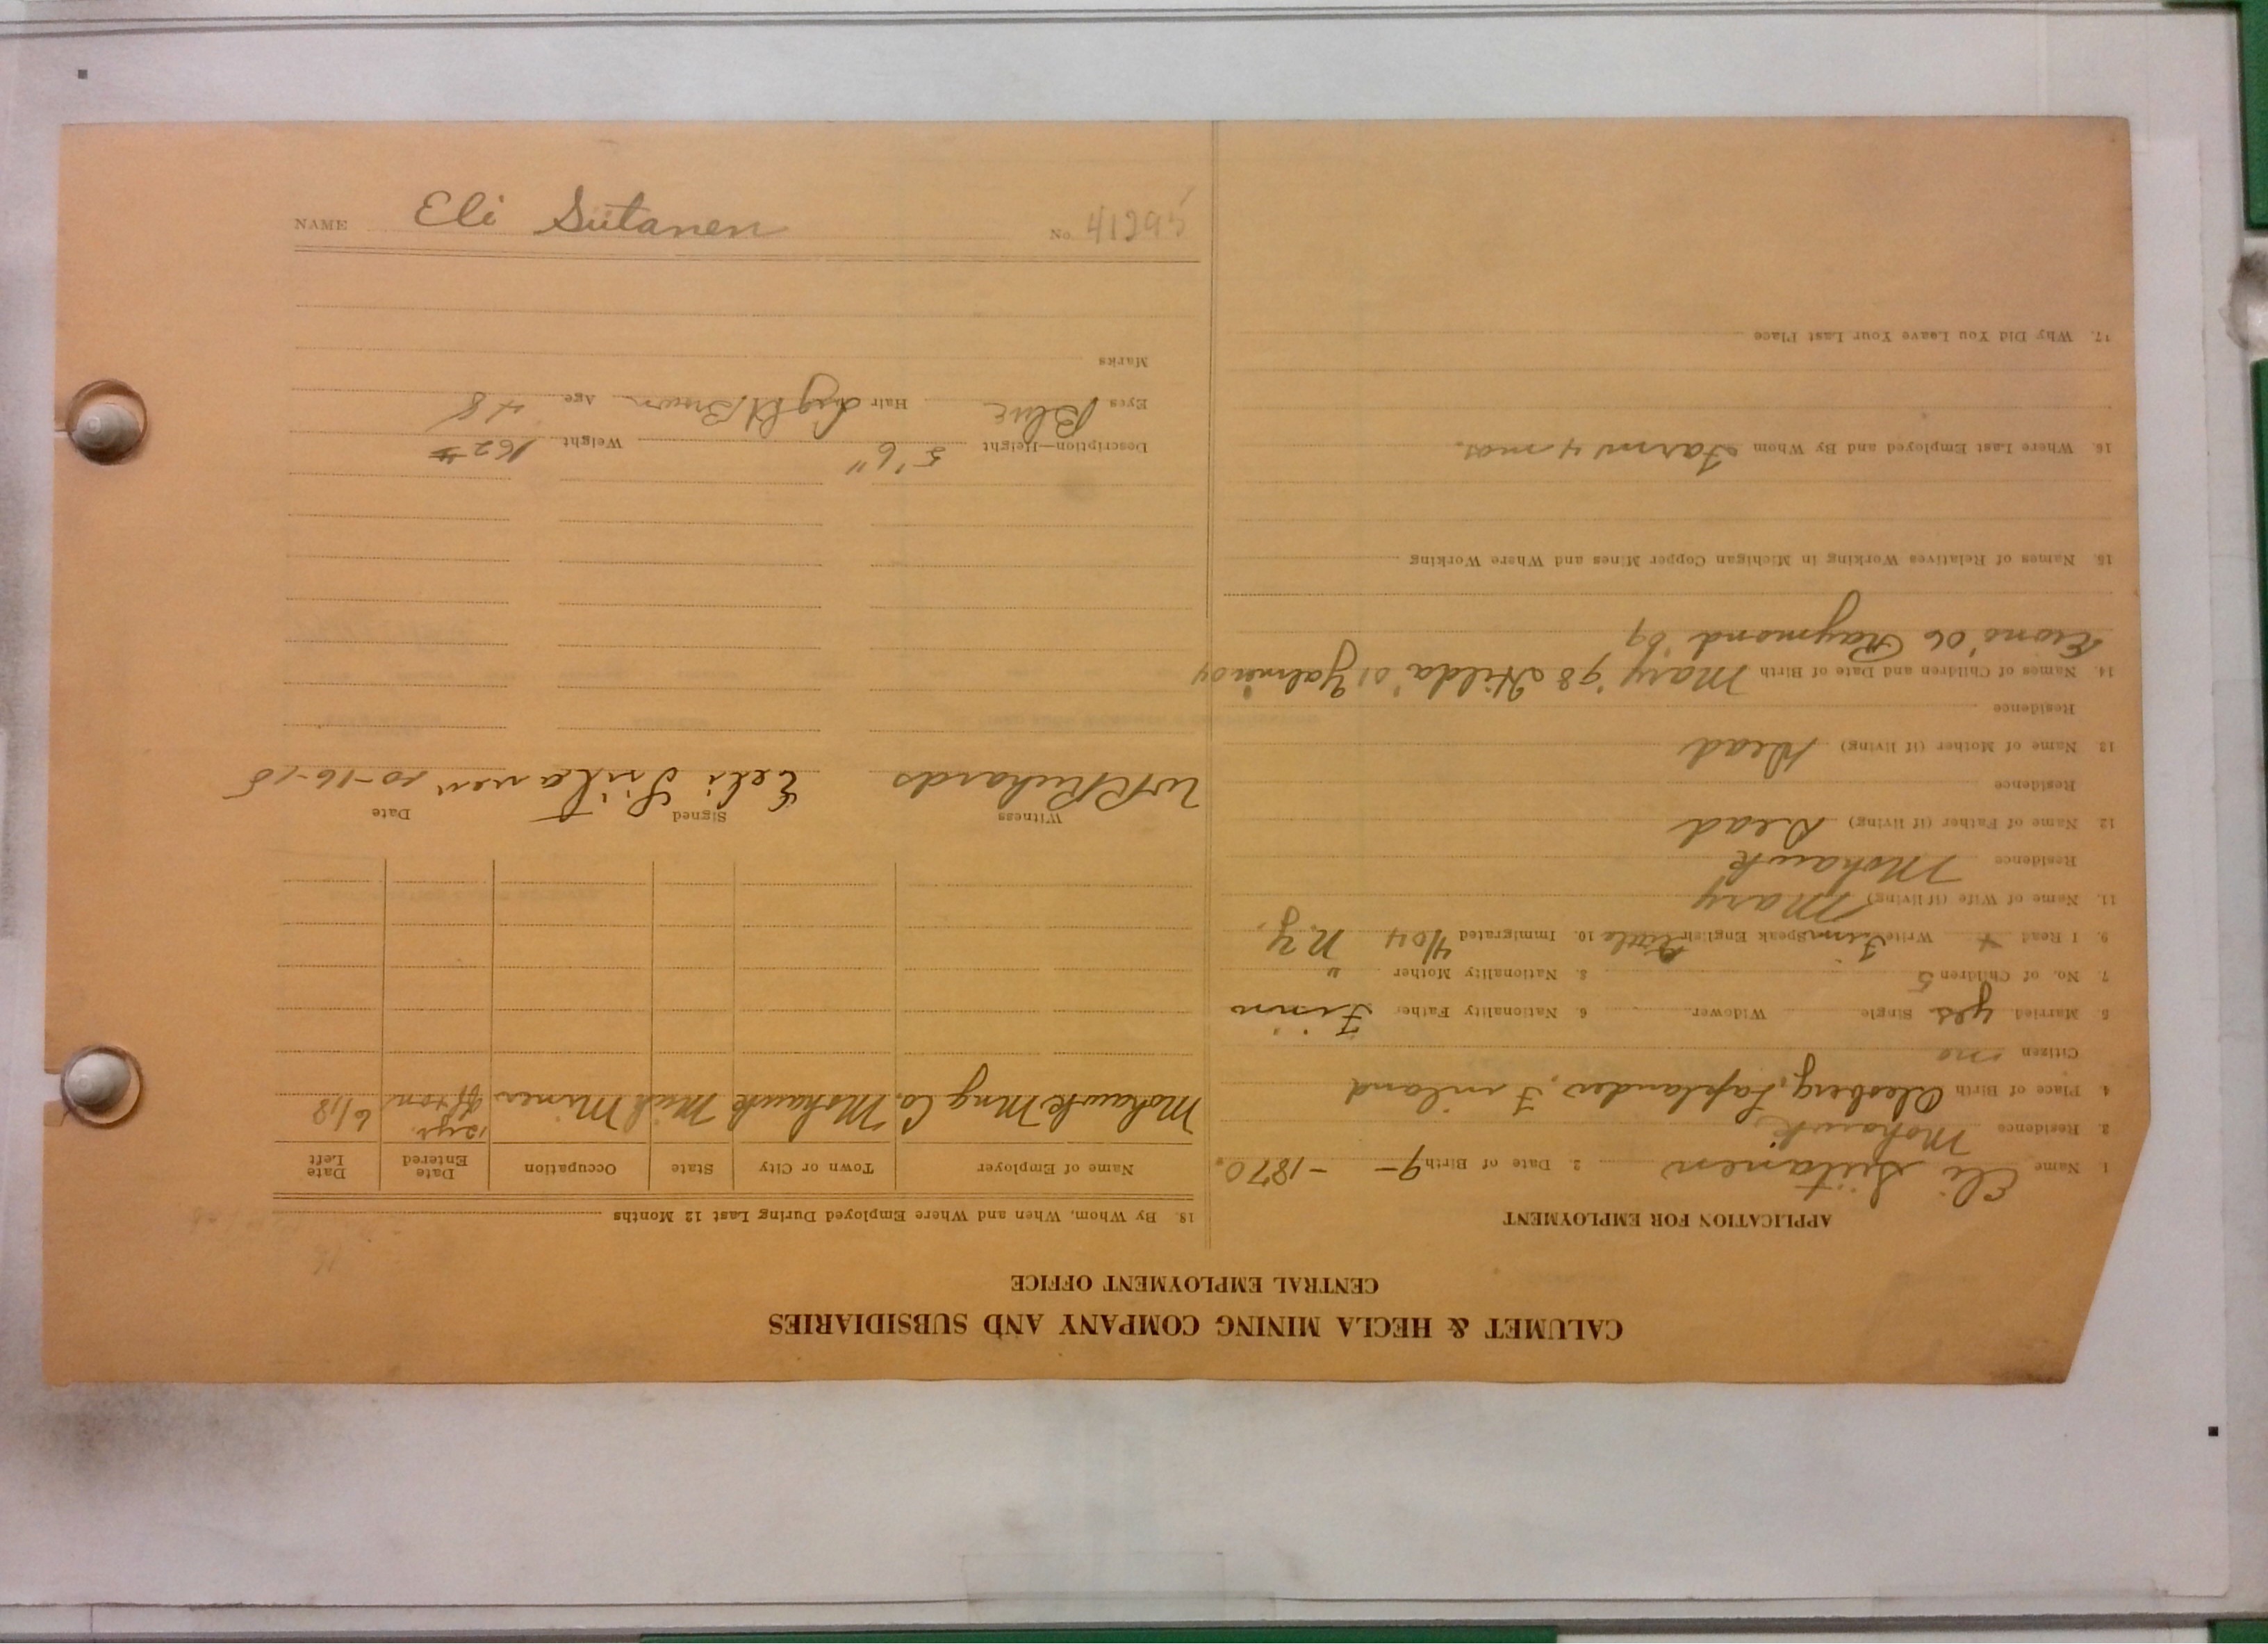 CALUMET & HECLA MINING COMPANY AND SUBSIDIARIES
CENTRAL EMPLOYMENT OFFICE
APPLICATION FOR EMPLOYMENT
1. Name Eli Siitanen 2. Date of Birth 9- -1870.
3. Residence Mohawk
4. Place of Birth Lapland, Finland
Citizen no
5. Married yes Single Widower 6. Nationality Father Finn
7. No. of Children 5 8. Nationality Mother "
9. I Read + Write Finn Speak English little 10. Immigrated 4/04 N.Y.
11. Name of Wife (if living) Mary
Residence Mohawk
12. Name of Father (if living) Dead
Residence
13. Name of Mother (if living) Dead
Residence
14. Names of Children and Date of Birth Mary '98 Hilda '01 04
Eino '06 Raymond '09
15. Names of Relatives Working in Michigan Copper Mines and Where Working
16. Where Last Employed and By Whom Farm 4 mos.
17. Why Did You Leave Your Last Place
18. By Whom, When and Where Employed During Last 12 Months
Name of Employer Town or City State Occupation Date Entered Date Left
Mohawk Mng Co. Mohawk Mich Miner 12 yrs. off + on 6/18
Witness Signed Date
W R Richards Eeli Siitanen 10-16-18
Description—Height 5' 6" Weight 162 #
Eyes Blue Hair Light Brown Age 48
Marks
NAME Eli Siitanen No. 41295